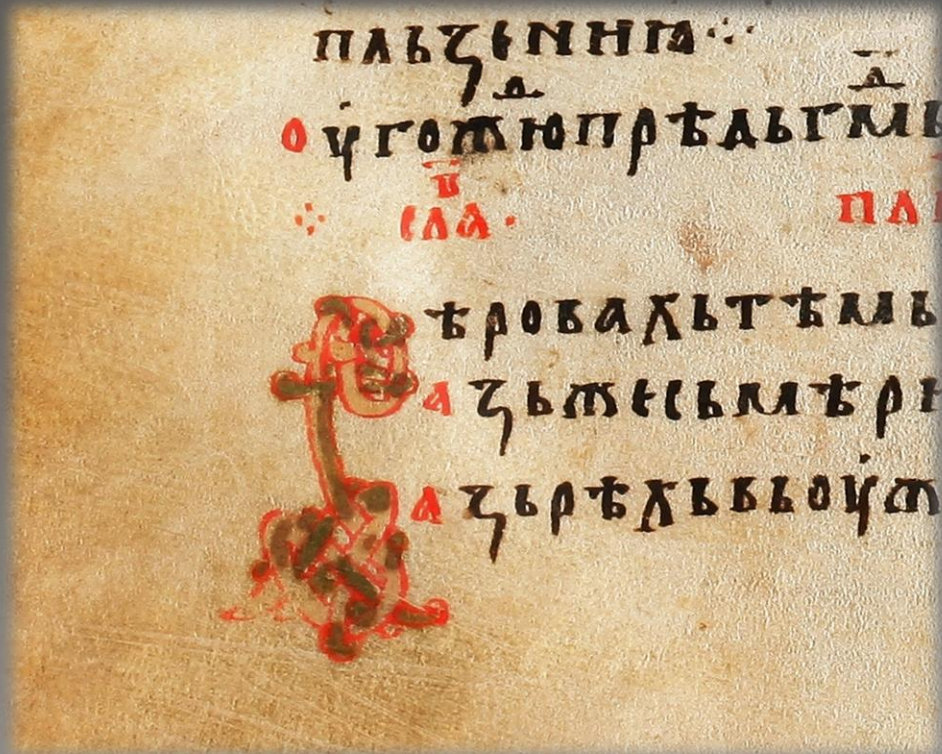 пльзениꙗ
оугожⷣюпрѣдьгмь
слаⷡ· пл
Вѣровахьтѣмь
азьжесьмѣр
азьрѣхьвьоуж